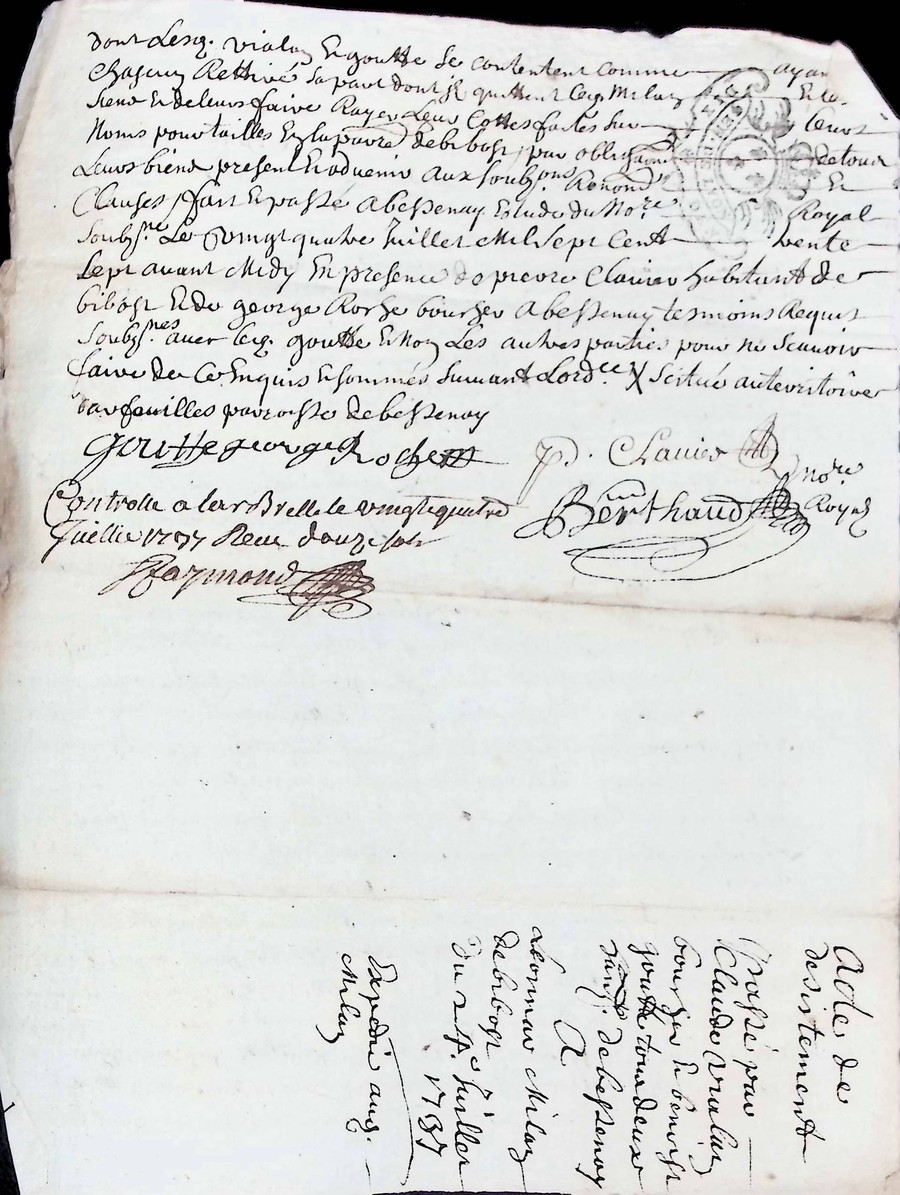 dont lesq. vialay Et goutte se contentent comme ayant
chascun Rettiré sa part dont ilz quittent led. Milay Et la
siene Et de leurs faire Rayer Leur Cottes faites sur leurs
Noms pour tailles En la parre de bibost, par obligaon de tous
Leurs biens present Et advenir aux soubons. Renoncon. Et
Clauses, fait Et passé a bessenay Estude du Nore. Royal
soubzne. Le vingt quatre Juillet Mil sept Cent trente
sept avant Midy En presence de pierre Clavier habitant de
bibost Et de george Roche bourger a bessenay tesmoins Requis
soubzsnes avec led. goutte Et Non Les autres parties pour ne scavoir
faire de Ce Enquis Et sommés suivant Lordce X scitué au territoire
parroisse de bessenay
goutte george Roche
P. Clavier
Berthaud nore Royal
Controllé a larBrelle le vingtquatre
Juillie 1737 Receu douze sols
Raymond
Acte de
desistement
passé par
Claude vialay
bourger Et benoist
goutte tous deux
de bessenay
A
Leonnar Milay
de bibost
du 24e. Juillet
1737
Expedié aud.
Milay